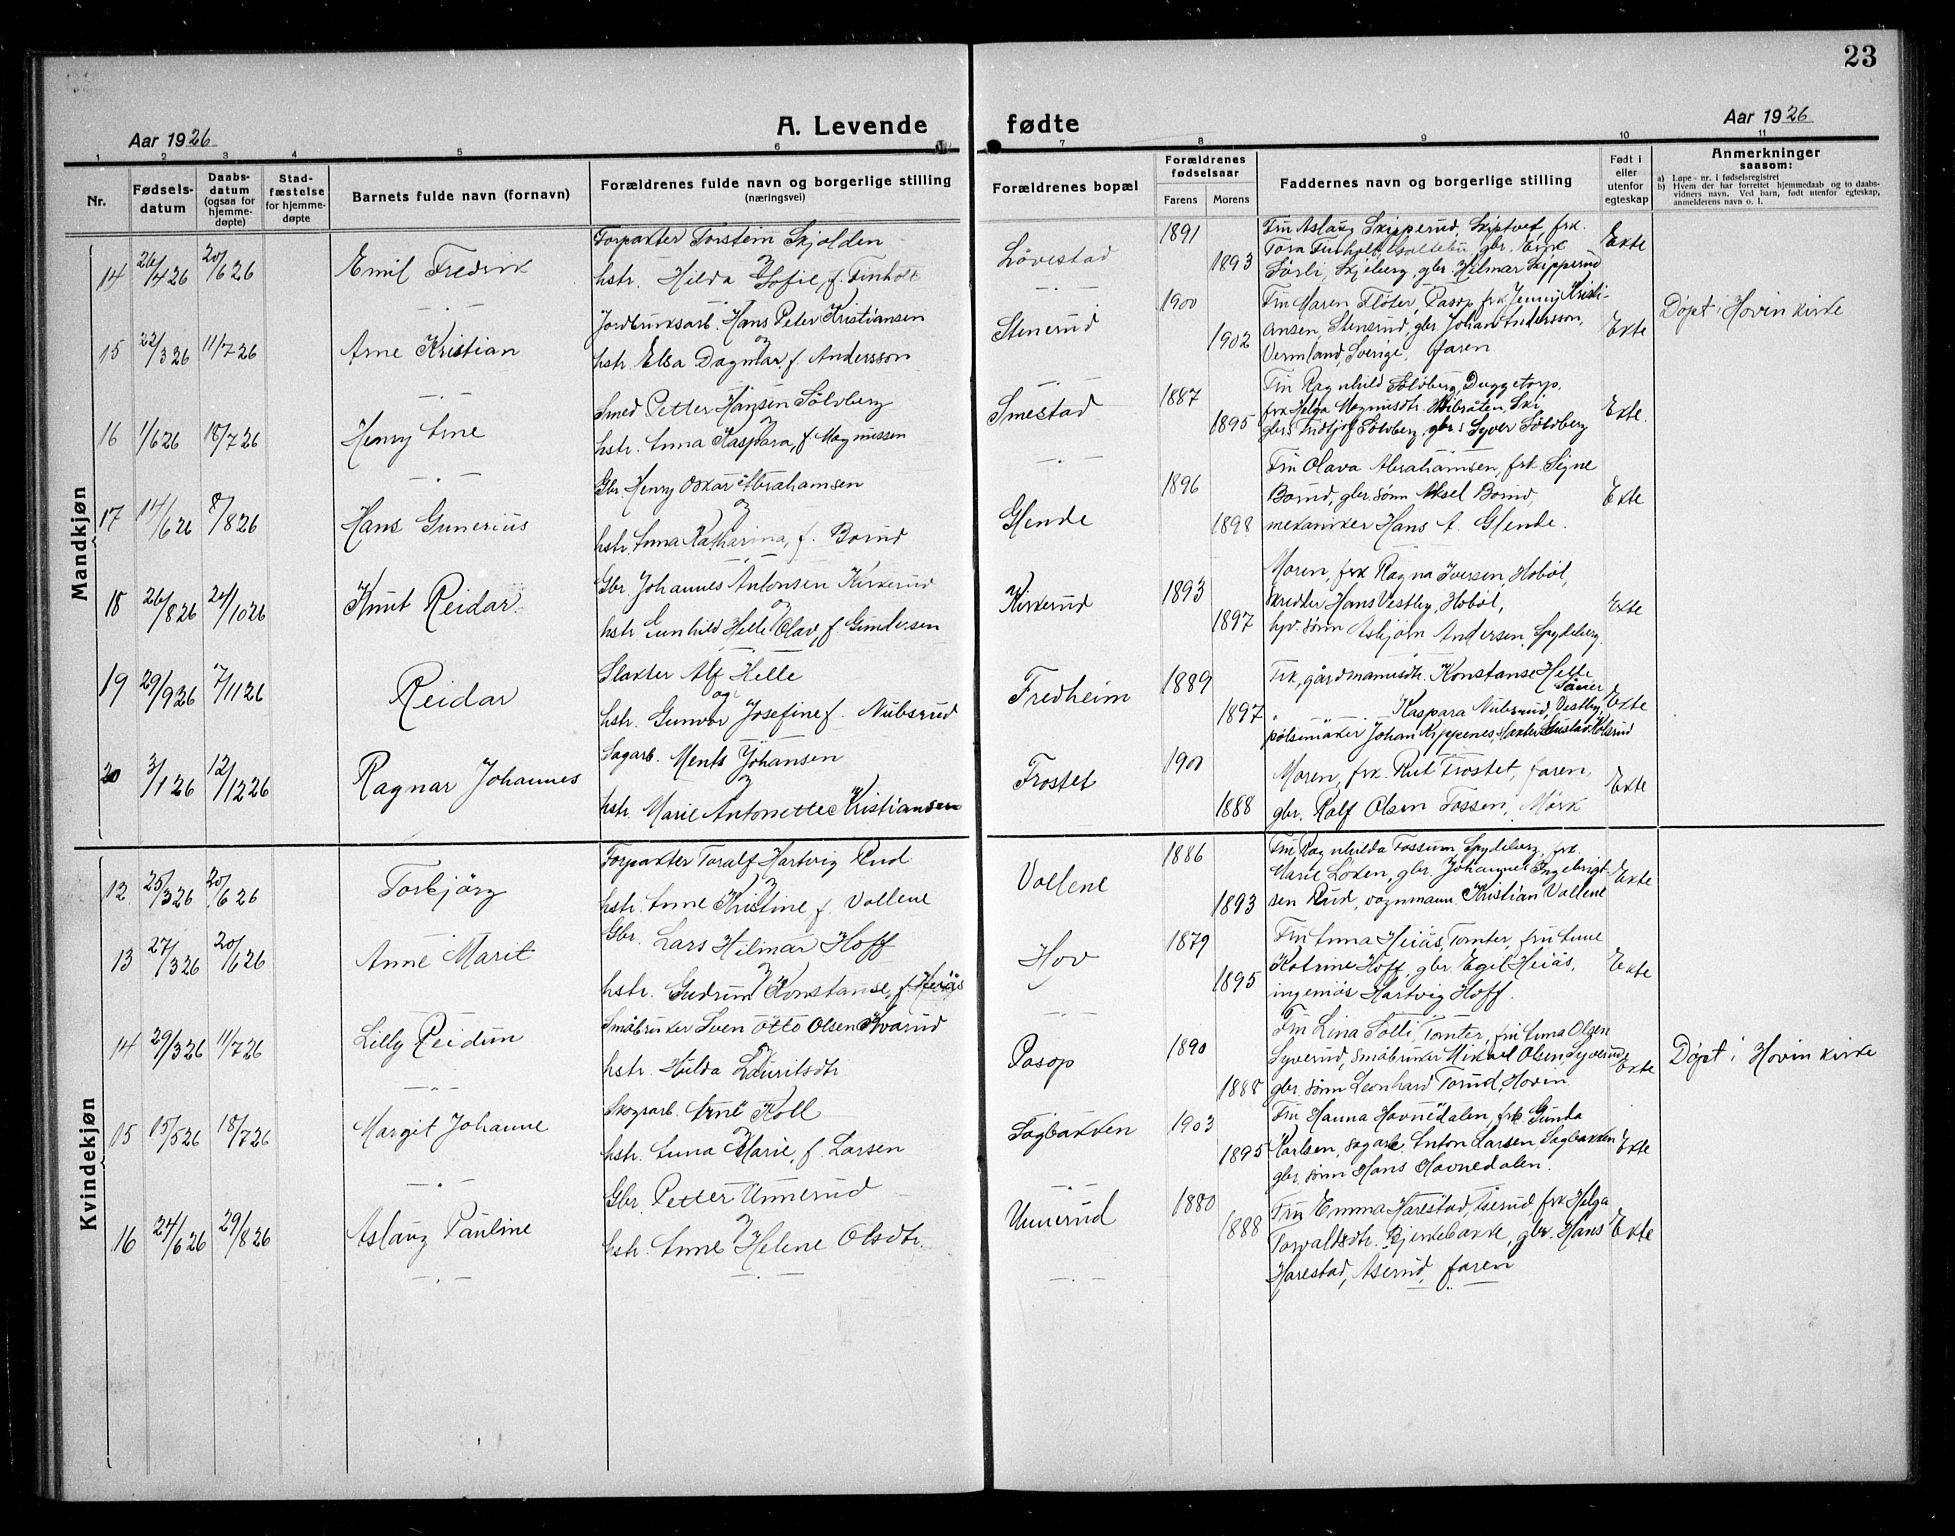 23
Aar 1926 A. Levende fødte Aar 1926
1 2 3 4 5 6 7 8 9 10 11
Nr. Fødsels-datum Daabs-datum (ogsaa for hjemme-døpte) Stad-fæstelse for hjemme-døpte Barnets fulde navn (fornavn) Forældrenes fulde navn og borgerlige stilling (næringsvei) Forældrenes bopæl Forældrenes fødselsaar Farens Morens Faddernes navn og borgerlige stilling Født i eller utenfor egteskap Anmerkninger saasom:
a) Løpe-nr. i fødselsregistret
b) Hvem der har forrettet hjemmedaab og to daabs-vidners navn. Ved barn, født utenfor egteskap, anmelderens navn o. l.
Mandkjøn
14 26/4 26 20/6 26 Emil Fredrik
Forpakter Torstein Skjolden
og
hstr. Hilda Sofie, f. Finholt
Lövestad 1891 1893
Fru Aslaug Skipperud, Skiptvet, frk.
Tora Finholt, gbr. Erik
Sörli, Skjeberg, gbr. Hilmar Skipperud
Ekte
15 22/3 26 11/7 26 Arne Kristian
Jordbruksarb. Hans Peter Kristiansen
og
hstr. Elsa Dagmar, f. Andersson
Stenerud 1900 1902
Fru Maren Flöter, Pasop, frk. Jenny Kristi-
ansen, Stensrud, gbr. Johan Andersson,
Vermland, Sverige, faren
Ekte Döpt i Hovin kirke
16 1/6 26 18/7 26 Henry Arne
Smed Petter Hansen Sölvberg
og
hstr. Anna Kaspara, f. Magnussen
Smestad 1887 1895
Fru Ragnhild Sölvberg, Duggetorp,
frk Helga Magnusdtr. Ski
gbr. Fridtjof Sölvberg, gbr. Syver Sölvberg
Ekte.
17 14/6 26 8/8 26 Hans Gunerius
Gbr. Henry Oskar Abrahamsen
og
hstr. Anna Katharina, f. Borud
Glende 1896 1898
Fru Olava Abrahamsen, frk. Signe
Borud, gbr. sönn Aksel Borud,
mekaniker Hans A. Glende.
Ekte
18 26/8 26 24/10 26 Knut Reidar
Gbr. Johannes Antonsen Kirkerud
og
hstr Gunhild Helle Olav, f Gundersen
Kirkerud 1893 1897
Moren, frk Ragna Iversen, Hobøl,
skredder Hans Vestby, Hobøl,
hpv. sönn Asbjörn Andersen, Spydeberg.
Ekte
19 29/9 26 7/11 26 Reidar
Slakter Alf Helle
og
hstr. Gunvor Josefine f. Nubsrud
Fredheim 1889 1897
Frk, gårdmannsdtr. Konstanse Helle
Såner
" Kaspara Nubsrud, Vestby,
pölsemaker Johan Kippenes, slakter Gustav Kölsrud
Ekte
20 3/1 26 12/12 26 Ragnar Johannes
Sagarb. Ments Johansen
og
hstr. Marie Antonette Kristiansen
Frostet 1900 1888
Moren, frk. Rut Frostet, faren,
gbr. Rolf Olsen Fossen, Mörk
Ekte
Kvindekjøn
12 25/3 26 20/6 26 Torbjörg
Forpakter Toralf Hartvig Rud
og
hstr. Anne Kristine f. Vollene
Vollene 1886 1893
Fru Ragnhilda Fossum Spydeberg, frk.
Marie Löken, gbr. Johannes Ingebrigt-
sen Rud, vognmann Kristian Vollene
Ekte
13 27/3 26 20/6 26 Anne Marit
Gbr. Lars Hilmar Hoff
og
hstr. Gudrun Konstanse, f. Heiås
Hov 1879 1895
Fru Anna Heiås, Tomter, fru Anne
Katrine Hoff, gbr. Egil Heiås,
ingeniör Hartvig Hoff.
Ekte
14 29/3 26 11/7 26 Lilly Reidun
Småbruker Sven Otto Olsen Kvarud
og
hstr. Hulda Lauritsdtr
Pasop 1890 1888
Fru Lina Solli, Tomter, fru Anna Olsen
Syverud, småbruker Mikael Olsen, Syverud,
gbr. sönn Leonhard Torud Hovin
Ekte Döpt i Hovin kirke
15 15/5 26 18/7 26 Margit Johanne
Skogsarb. Arne Koll
og
hstr. Anna Marie, f. Larsen
Sagbakken 1903 1895
Fru Hanna Hovnedalen, frk. Gunda
Karlsen, sagarb. Anton Larsen Sagbakken
gbr. sönn Hans Hovnedalen.
Ekte
16 24/6 26 29/8 26 Aslaug Pauline
Gbr. Petter Unnerud
og
hstr. Anne Helene Olsdtr.
Unnerud 1880 1888
Fru Emma Harestad, Aserud, frk Helga
Torvaldsdtr. Bjerkebakke, gbr. Hans
Harestad, Aserud, faren
Ekte